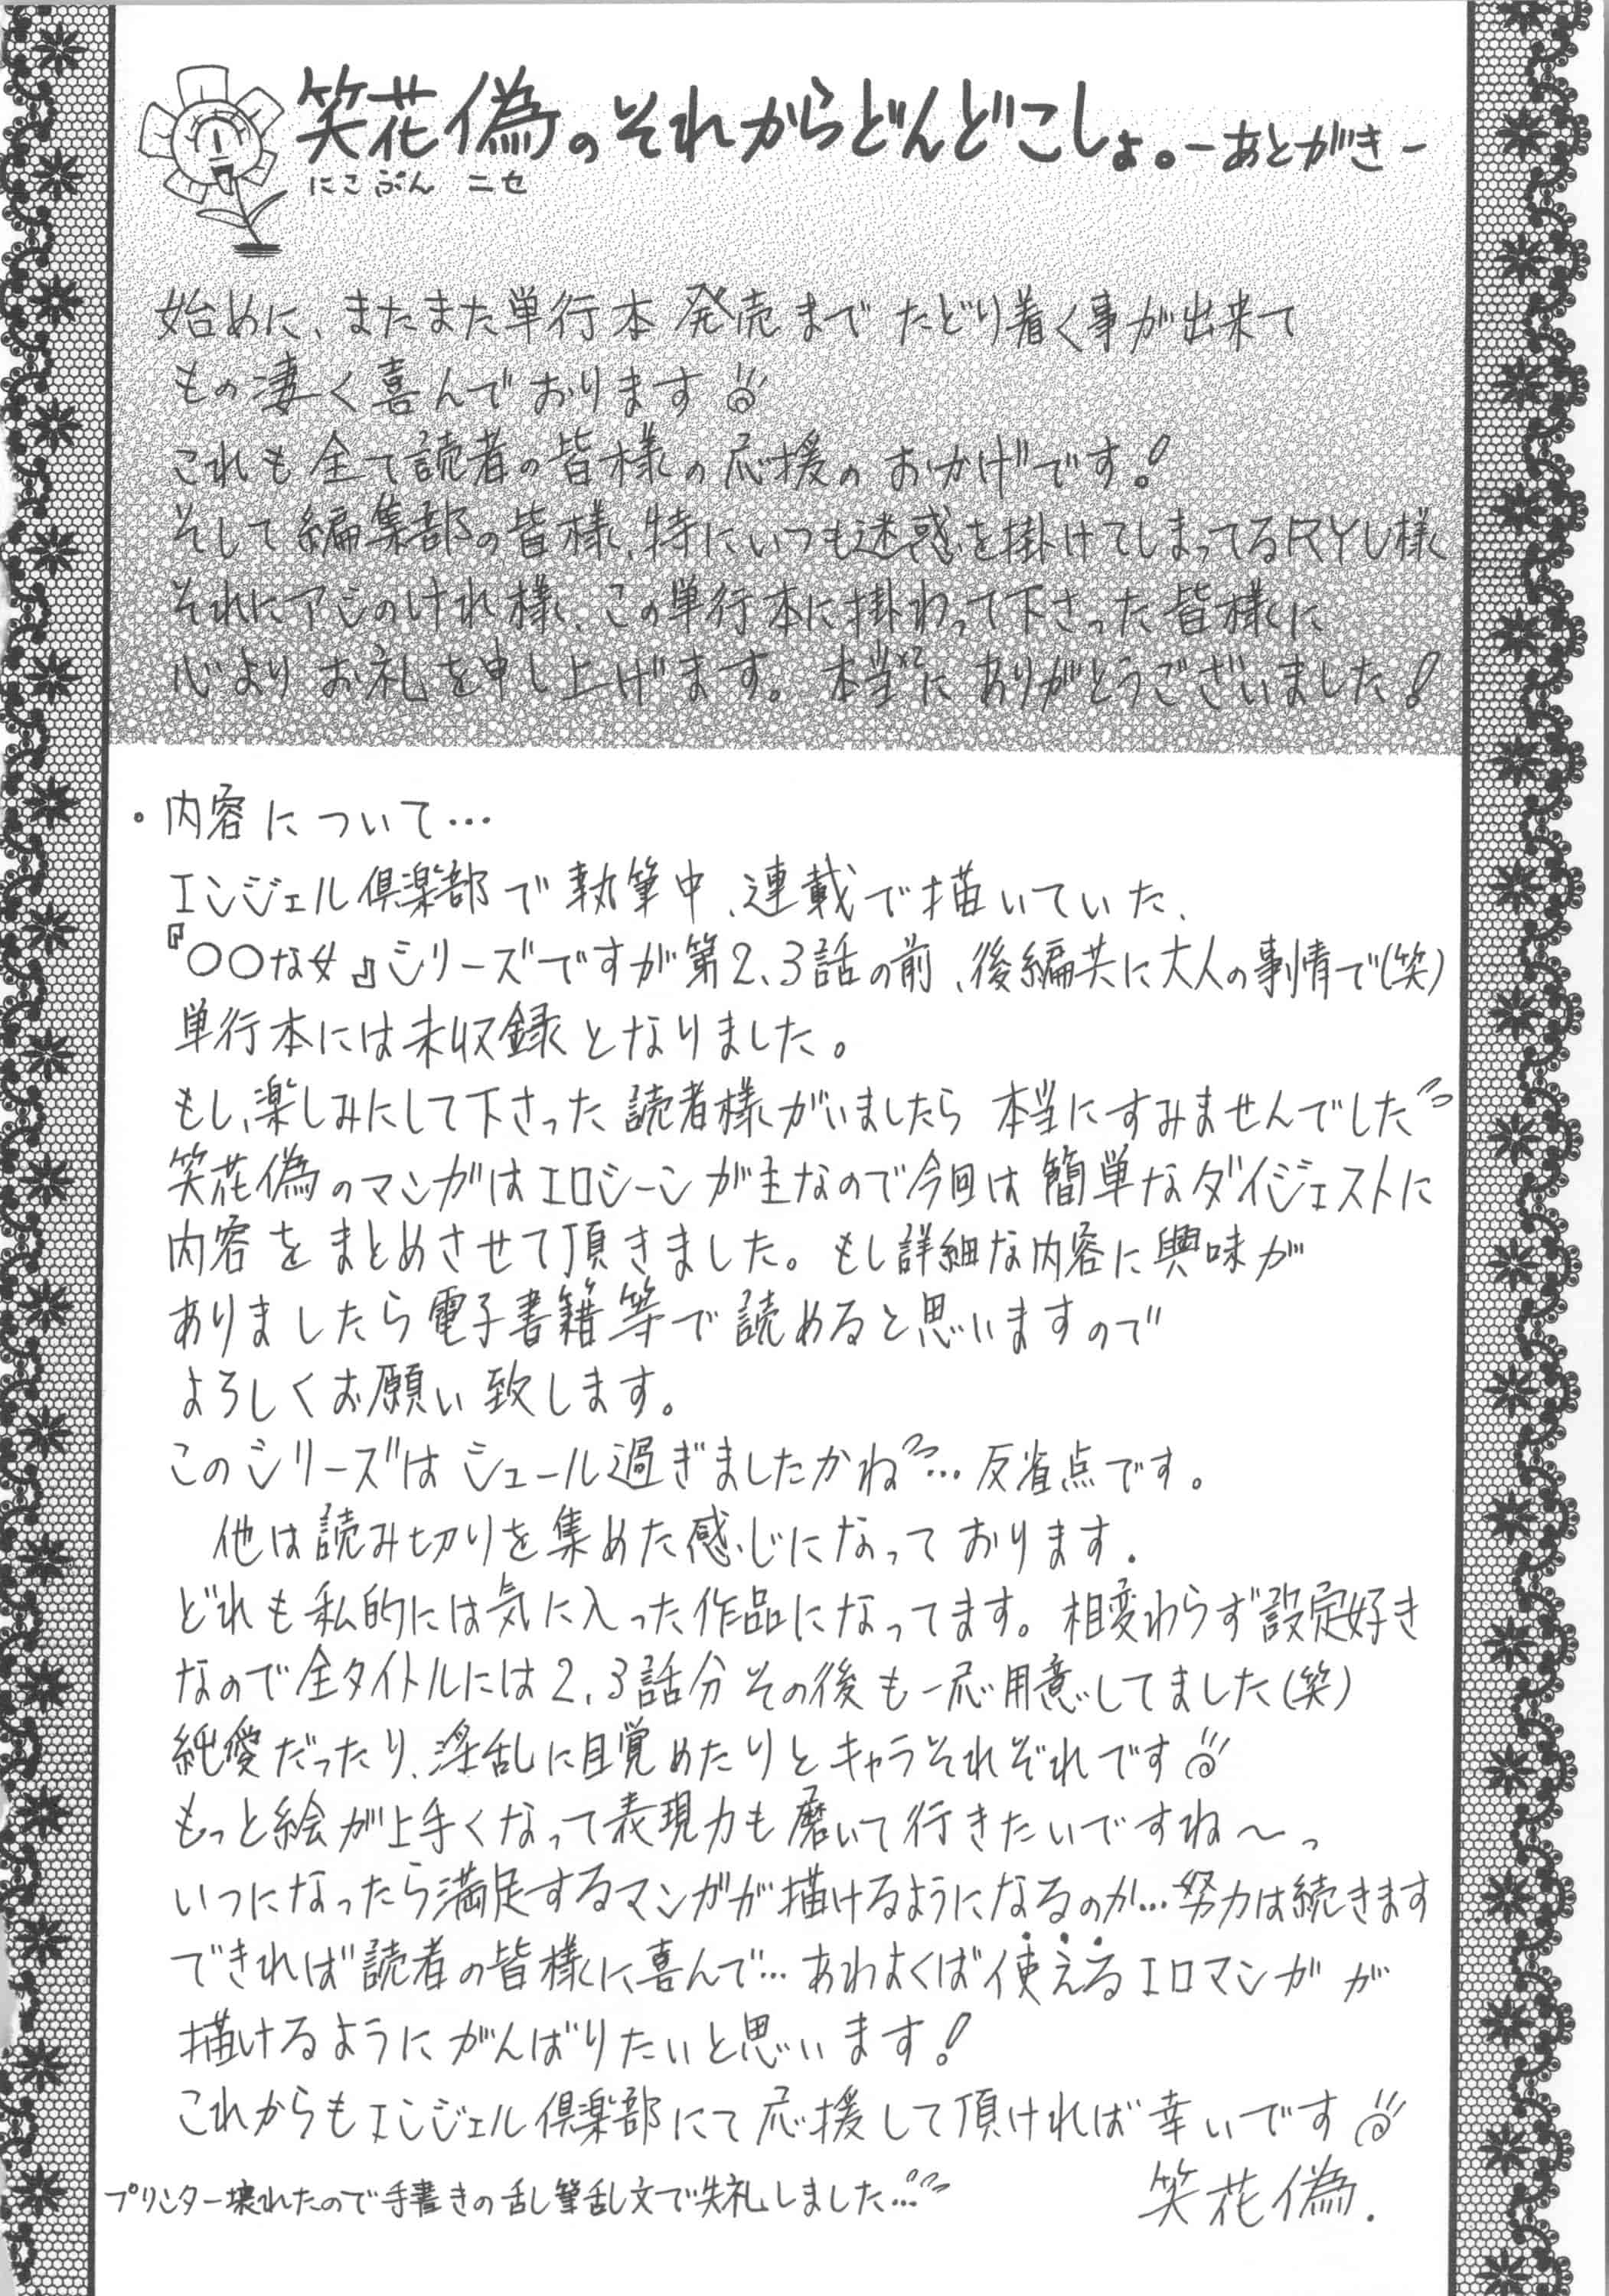 笑花偽のそれからどんどこしょ。-あとがき-
にこぷん ニセ
始めに、またまた単行本発売までたどり着く事が出来て
もの凄く喜んでおります
これも全て読者の皆様の応援のおかげです!
そして編集部の皆様、特にいつも迷惑を掛けてしまってるRYU様
それにアジのけれ様、この単行本に掛わって下さった皆様に
心よりお礼を申し上げます。本当×2にありがとうございました!
・内容について…
エンジェル倶楽部で執筆中、連載で描いていた、
『○○な女』シリーズですが第2、3話の前、後編共に大人の事情で(笑)
単行本には未収録となりました。
もし、楽しみにして下さった読者様がいましたら本当にすみませんでした
笑花偽のマンガはエロシーンが主なので今回は簡単なダイジェストに
内容をまとめさせて頂きました。もし詳細な内容に興味が
ありましたら電子書籍等で読めると思いますので
よろしくお願い致します。
このシリーズはシュール過ぎましたかね…反省点です。
他は読み切りを集めた感じになっております.
どれも私的には気に入った作品になってます。相変わらず設定好き
なので全タイトルには2、3話分その後も一応用意してました(笑)
純愛だったり、淫乱に目覚めたりとキャラそれぞれです
もっと絵が上手くなって表現力も磨いて行きたいですね〜っ
いつになったら満足するマンガが描けるようになるのか…努力は続きます
できれば読者の皆様に喜んで…あわよくば使えるエロマンガが
描けるようにがんばりたいと思います!
これからもエンジェル倶楽部にて応援して頂ければ幸いです
プリンター壊れたので手書きの乱筆乱文で失礼しました…
笑花偽.